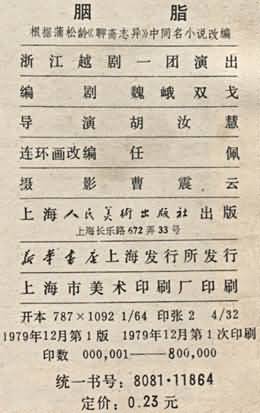 胭脂
根据蒲松龄《聊斋志异》中同名小说改编
浙江越剧一团演出
编剧 魏峨 双戈
导演 胡汝慧
连环画改编 任佩
摄影 曹震云
上海人民美術出版社出版
上海长乐路672弄33号
新华書店上海发行所发行
上海市美术印刷厂印刷
开本 787×1092 1/64 印张 2 4/32
1979年12月第1版 1979年12月第1次印刷
印数 000,001——800,000
统一书号：8081·11864
定价：0.23元